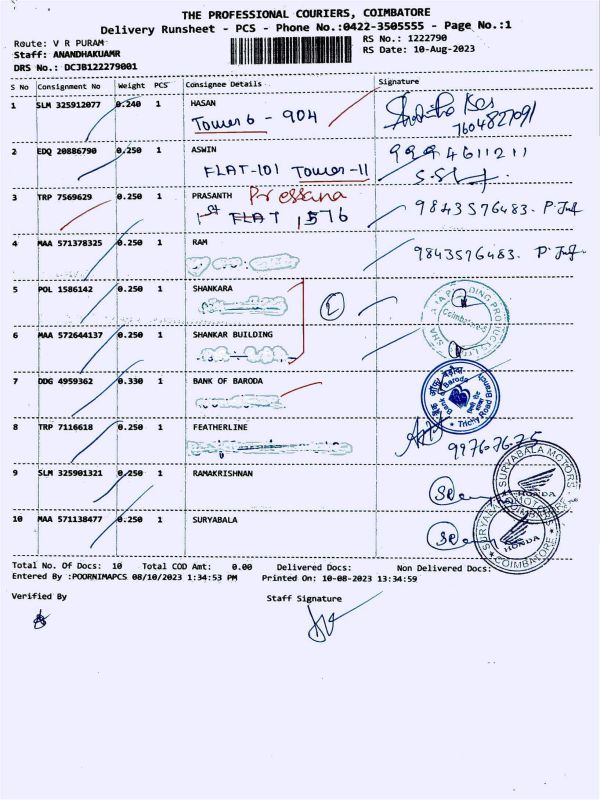 THE PROFESSIONAL COURIERS, COIMBATORE
Delivery Runsheet - PCS - Phone No.:0422-3505555 - Page No.:1
Route: V R PURAM
RS No.: 1222790
Staff: ANANDHAKUAMR
RS Date: 10-Aug-2023
DRS No.: DCJB122279001
S No Consignment No Weight PCS Consignee Details Signature
1 SLM 325912077 0.240 1 HASAN
Tower 6 - 904
7604827091
2 EDQ 20886790 0.250 1 ASWIN
FLAT-101 Tower-11
9994611211
3 TRP 7569629 0.250 1 PRASANTH Pressana
1st FLAT 1576
9843576483.
4 MAA 571378325 0.250 1 RAM
9843576483.
5 POL 1586142 0.250 1 SHANKARA
Coimbatore-5
6 MAA 572644137 0.250 1 SHANKAR BUILDING
7 DDG 4959362 0.330 1 BANK OF BARODA
Bank of Baroda
Trichy Road Branch
8 TRP 7116618 0.250 1 FEATHERLINE
9 SLM 325901321 0.250 1 RAMAKRISHNAN
SURYABALA MOTORS
HONDA
COIMBATORE
10 MAA 571138477 0.250 1 SURYABALA
SURYABALA MOTORS
HONDA
COIMBATORE
Total No. Of Docs: 10 Total COD Amt: 0.00 Delivered Docs: Non Delivered Docs:
Entered By :POORNIMAPCS 08/10/2023 1:34:53 PM Printed On: 10-08-2023 13:34:59
Verified By Staff Signature